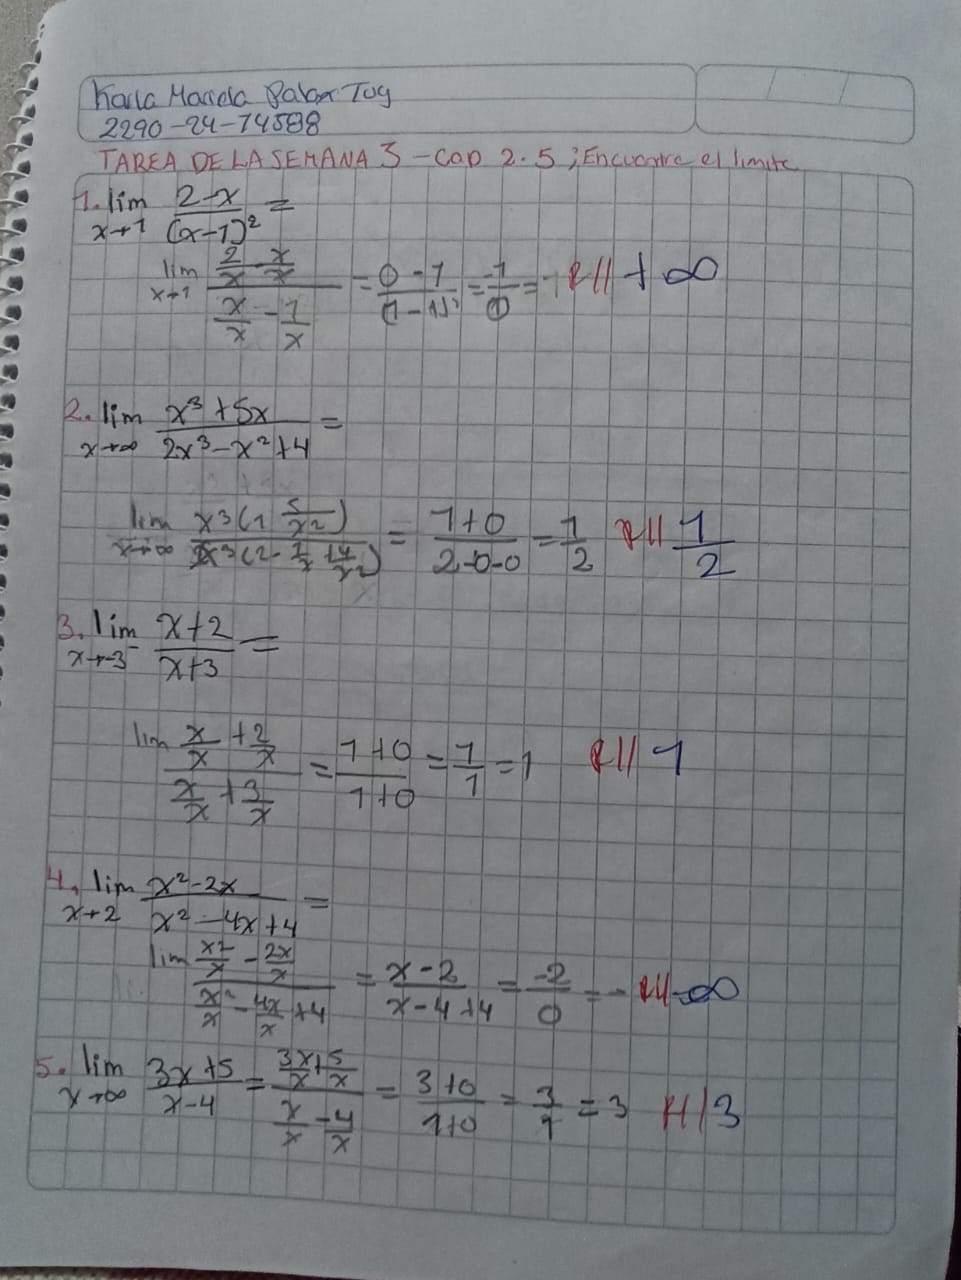 2290-24-14588
TAREA DE LA SEMANA 3 - CAP 2.5; Encuentre el limite
1. lim x→1 (2-x)/(x-1)² =
lim x→1 (2/x - x/x)/(x/x - 1/x) = (0-1)/(1-1)² = -1/0 = - R// +∞
2. lim x→∞ (x³+5x)/(2x³-x²+4) =
lim x→∞ x³(1 5/x²)/x³(2 - 1/x + 4/x²) = (1+0)/(2-0-0) = 1/2 R// 1/2
3. lim x→-3⁻ (x+2)/(x+3) =
lim (x/x + 2/x)/(x/x + 3/x) = (1+0)/(1+0) = 1/1 = 1 R// 1
4. lim x→2 (x²-2x)/(x²-4x+4) =
lim (x²/x - 2x/x)/(x²/x - 4x/x + 4) = (x-2)/(x-4+4) = -2/0 = - R// -∞
5. lim x→∞ (3x+5)/(x-4) = (3x/x + 5/x)/(x/x - 4/x) = (3+0)/(1+0) = 3/1 = 3 R// 3